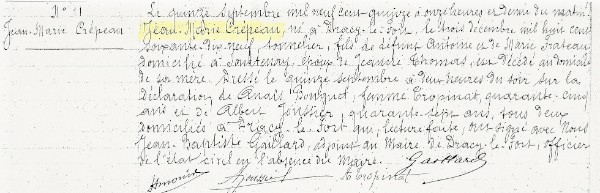 N° 31
Jean-Marie Crépeau
Le quinze Septembre mil neuf cent quinze à onze heures et demi du matin
Jean-Marie Crépeau, né à Dracy-le-Fort, le trois décembre mil huit cent
soixante dix neuf, tonnelier, fils de défunt Antoine et de Marie Frateau
domicilié à Santenay, époux de Jeanne Thomas, est décédé au domicile
de sa mère. Dressé le quinze Septembre à deux heures du soir sur la
déclaration de Anaïs Bouquet, femme Cropinat, quarante-cinq
ans et de Albert Joussier, quarante-sept ans, tous deux
domiciliés à Dracy-le-Fort qui, lecture faite, ont signé avec Nous
Jean-Baptiste Gaillard, adjoint au Maire de Dracy-le-Fort, officier
de l'état civil en l'absence du Maire. Gaillard
Joussier A Cropinat